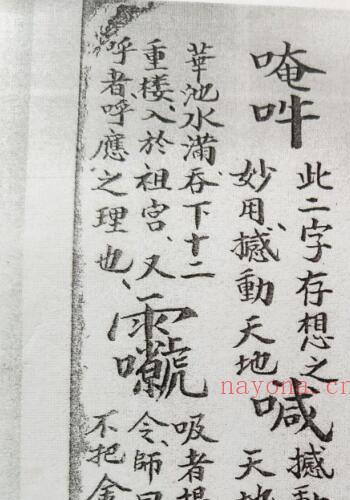 唵吽
此二字存想之
妙用、撼動天地
喊
撼動
天地
華池水滿、吞下十二
重楼、入於祖宮、又
呼者、呼應之理也、
吸者
令、師曰
不把金
nayona.cn